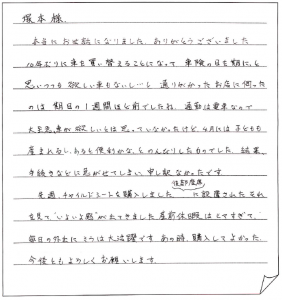 塚本様.
本当にお世話になりました. ありがとうございました
10年ぶりに車を買い替えることになって 車検の日も期に, と
思いつつも 欲しい車もないし… と 通りがかったお店に伺った
のは 期日の1週間ほど前でしたね. 通勤は電車なので
大至急、車が欲しいとは思っていなかったけど, 4月には子どもも
産まれるし, あると便利かな, と, のんびりしたカンでした. 結果,
手続きなどに急がせてしまい 申し訳なかったです
先週, チャイルドシートを購入しました
後部座席
に設置された それ
を見て, "いよいよ感"が出てきました 産前休暇はヒマすぎて,
毎日の外出に そうは大活躍です あの時, 購入してよかった.
今後ともよろしくお願いします.